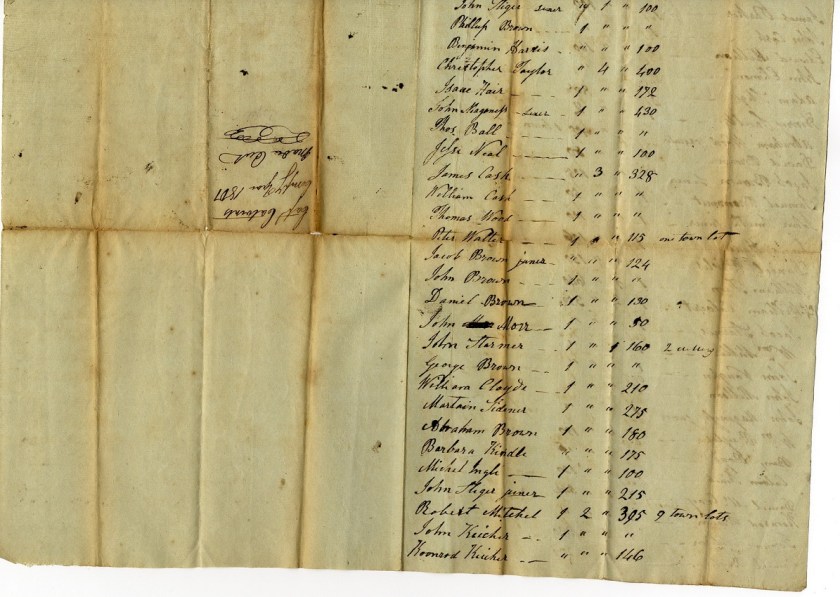 John Sliger senor " 1 " " 100
Phillip Brown 1 " " "
Benjamin Harris - " " " 100
Christopher Taylor " 4 " 400
Isaac Hair 1 " " 172
John senor 1 " " 430
Thos Ball 1 " " "
Jesse Neal 1 " " 100
James Cash " 3 " 328
William Cash 1 " " "
Thomas Wood 1 " " "
Peter Walter 1 " " 115 one town lot
Jacob Brown juner " " " 124
John Brown 1 " " "
Daniel Brown 1 " " 130
John Morr 1 " " 50
John Starmer 1 " 1 160
George Brown 1 " " "
William Cloyde 1 " " 210
Martain Sidener 1 " " 275
Abraham Brown 1 " " 180
Barbara Kindle " " " 175
Michel Ingle 1 " " 100
John Sliger juner 1 " " 215
Robert Mitchel 1 2 " 395 9 town lots
John Keicher 1 " " "
Koonrod Kicher " " " 146